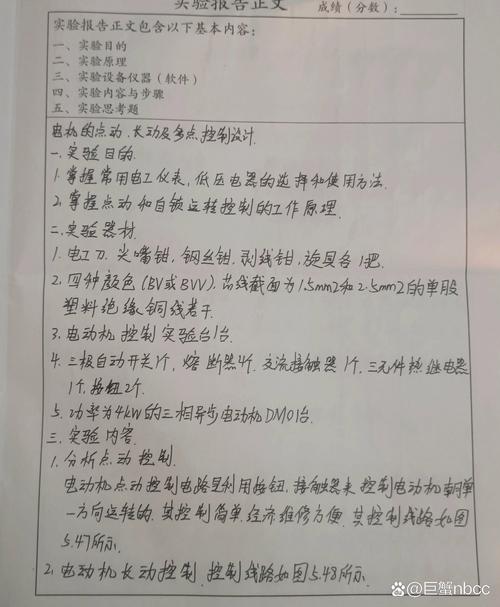 实验报告正文
成绩（分数）：
实验报告正文包含以下基本内容：
一、实验目的
二、实验原理
三、实验设备仪器（软件）
四、实验内容与步骤
五、实验思考题
电机的点动、长动及多点控制设计.
一.实验目的.
1.掌握常用电工仪表,低压电器的选择和使用方法.
2.掌握点动和自锁运转控制的工作原理.
二.实验器材.
1.电工刀.尖嘴钳,钢丝钳.剥线钳,旋具各1把.
2.四种颜色(BV或BVV).芯线截面为1.5mm2和2.5mm2的单股
塑料绝缘铜线若干.
3.电动机控制实验台1台.
4.三极自动开关1个,熔断器4个.交流接触器1个.三元件热继电器
1个.按钮2个.
5.功率为4kW的三相异步电动机DM01台.
三.实验内容.
1.分析点动控制.
电动机点动控制电路里利用按钮,接触器来控制电动机朝单
一方向运转的.其控制简单.经济维修方便.其控制线路如图
5.47所示.
2.电动机长动控制.控制线路如图5.48所示.
知乎 @巨蟹nbcc